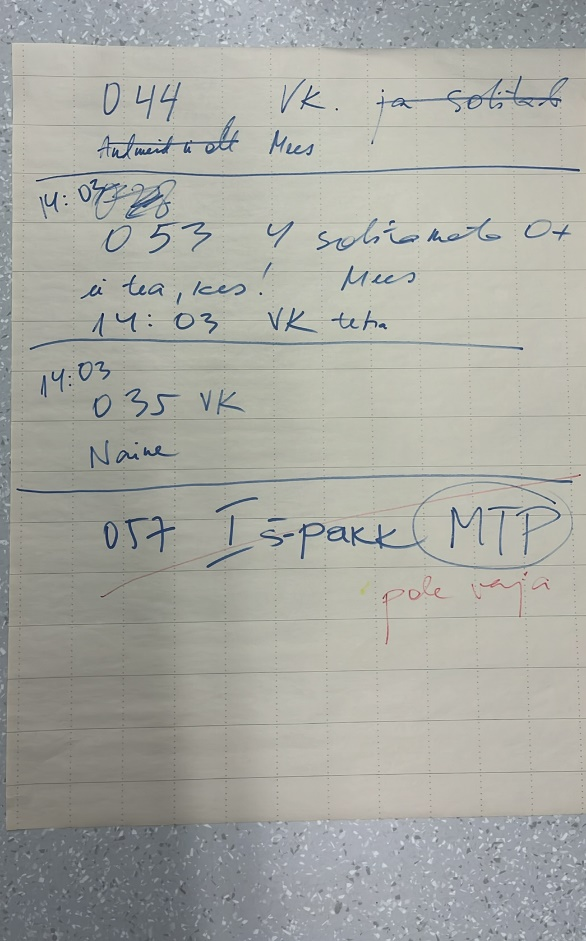 044 VK. ja sobitab
Andmeid ei ole Mees
14:03
053 4 sobitamata O+
ei tea, kes! Mees
14:03 VK teha
14:03
035 VK
Naine
057 I š-pakk MTP
pole vaja